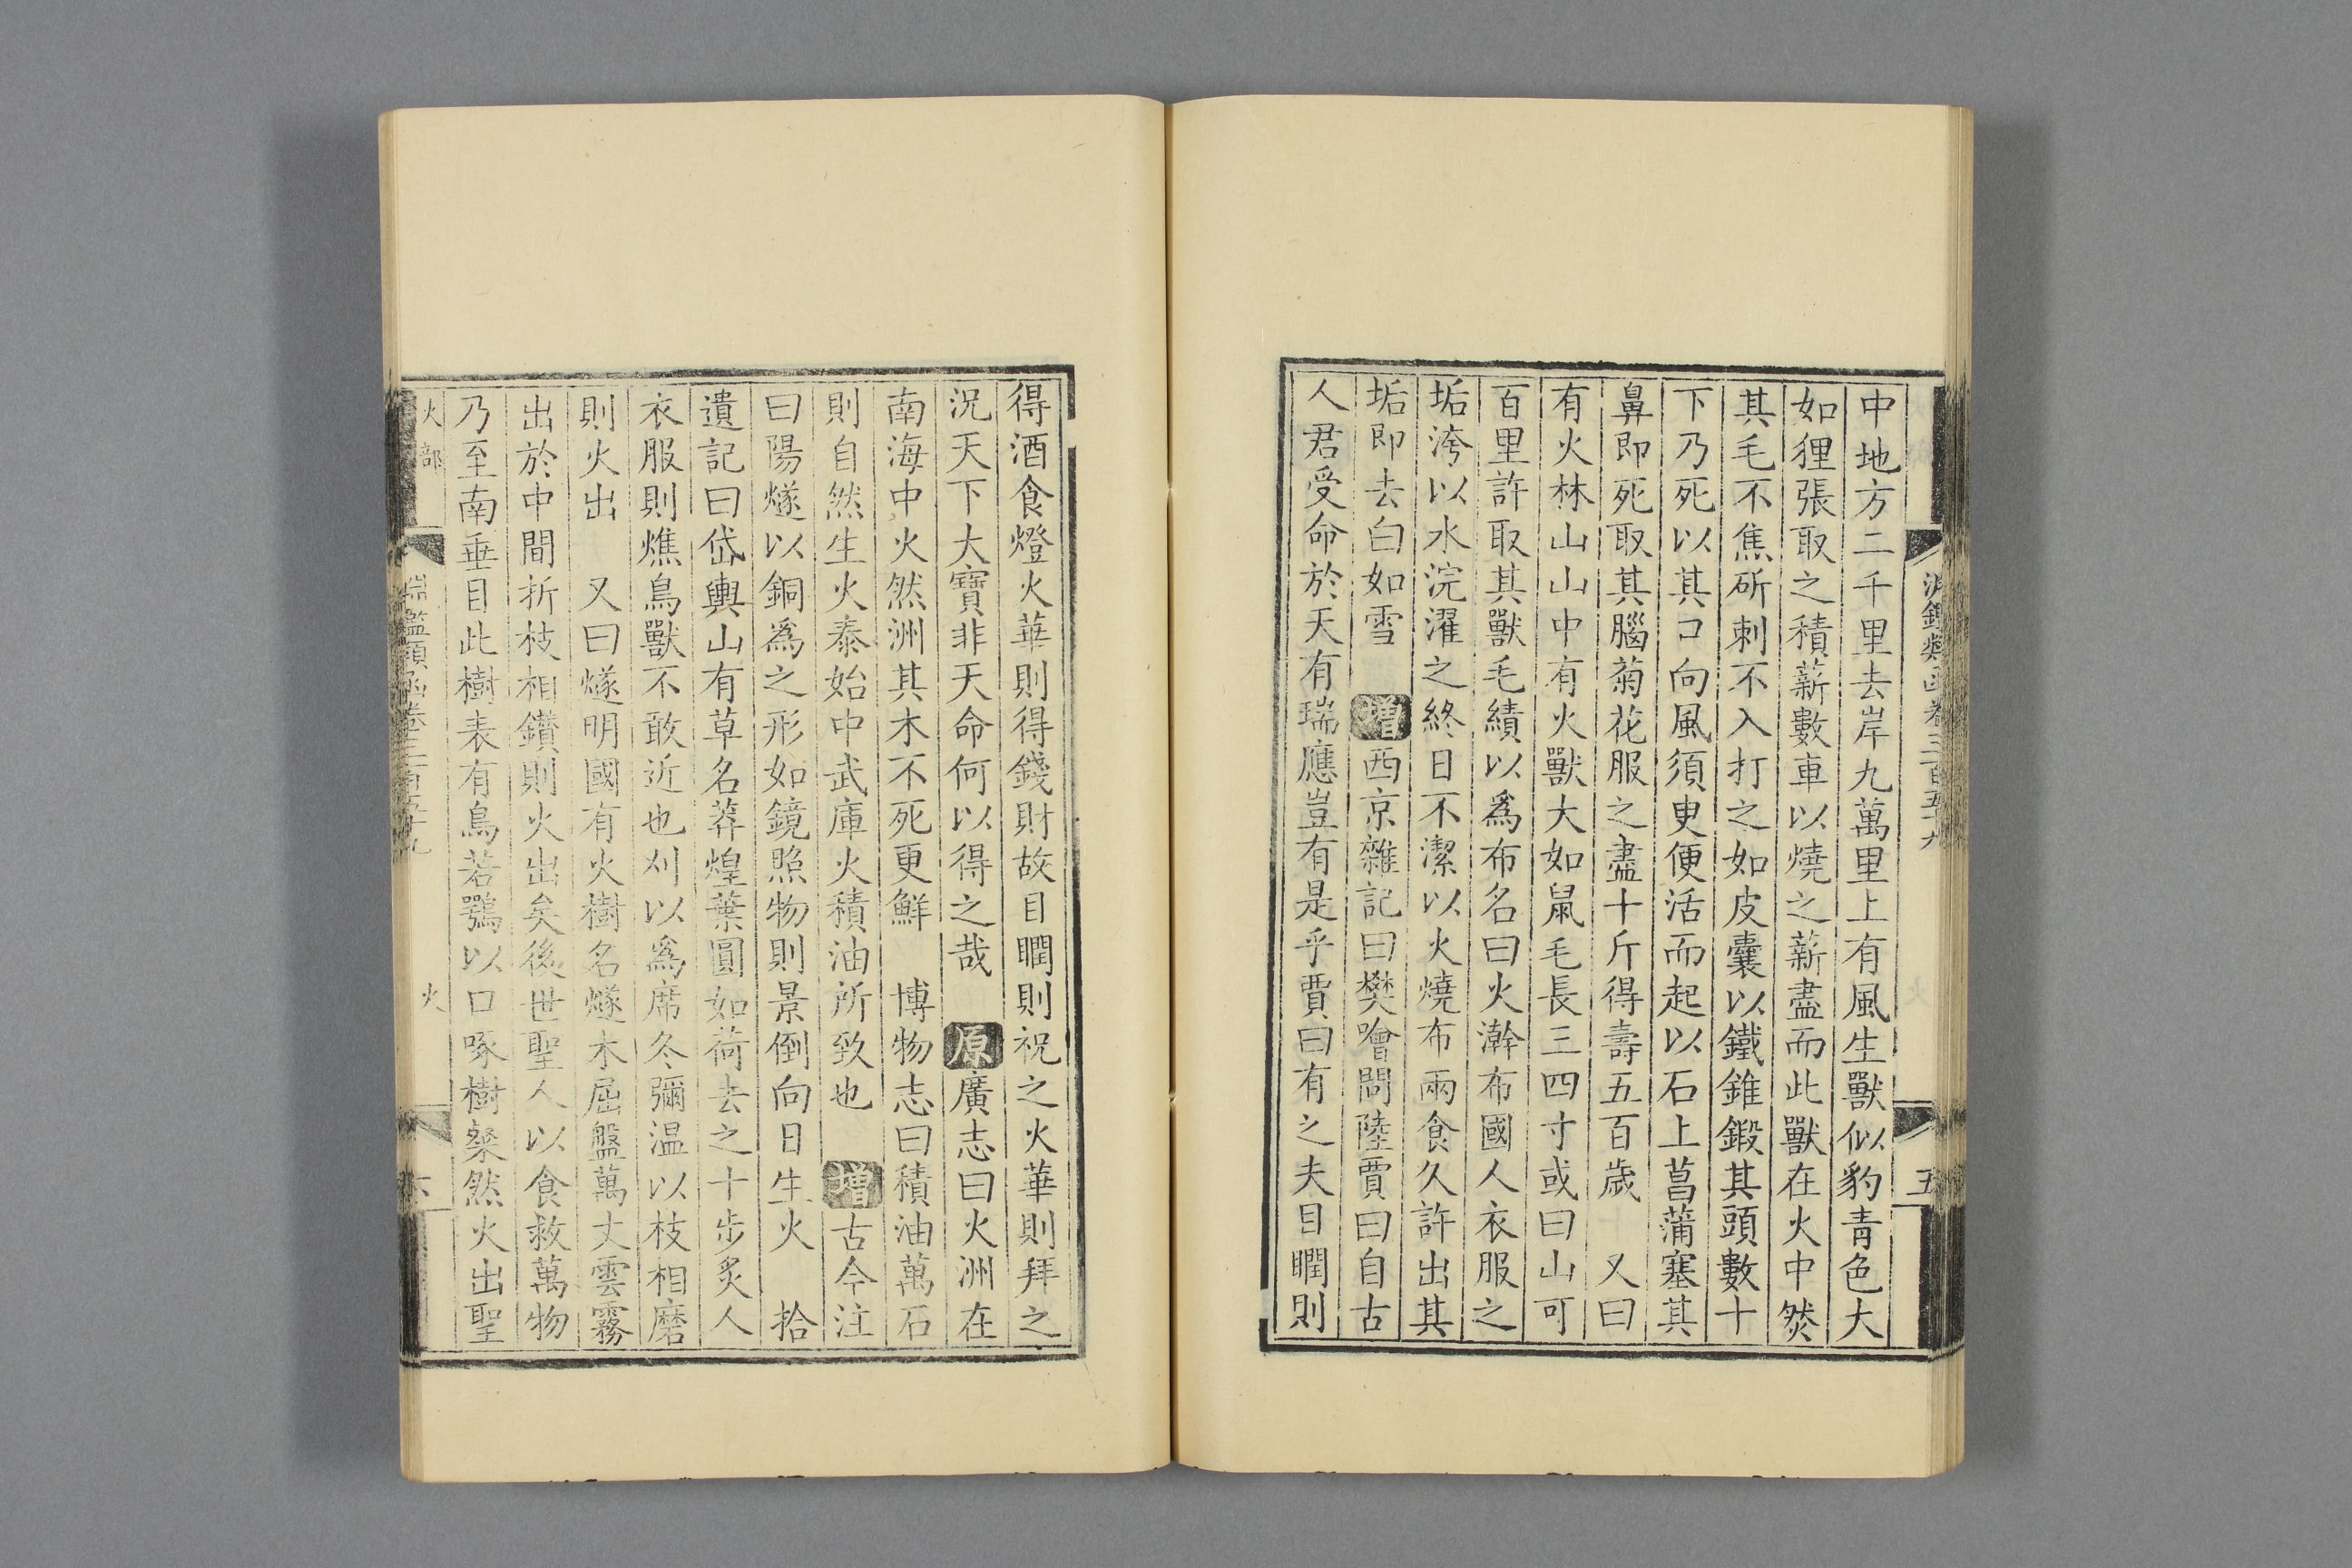 淵鑑類函卷三百五十九
五
中地方二千里去岸九萬里上有風生獸似豹青色大
如狸張取之積薪數車以燒之薪盡而此獸在火中㷼
其毛不焦斫刺不入打之如皮囊以鐵錐鍛其頭數十
下乃死以其口向風須臾便活而起以石上菖蒲塞其
鼻即死取其腦菊花服之盡十斤得壽五百歲　又曰
有火林山山中有火獸大如鼠毛長三四寸或曰山可
百里許取其獸毛績以爲布名曰火澣布國人衣服之
垢洿以水浣濯之終日不潔以火燒布兩食久許出其
垢即去白如雪　增西京雜記曰樊噲問陸賈曰自古
人君受命於天有瑞應豈有是乎賈曰有之夫目瞤則
得酒食燈火華則得錢財故目瞤則祝之火華則拜之
況天下大寶非天命何以得之哉　原廣志曰火洲在
南海中火然洲其木不死更鮮　博物志曰積油萬石
則自然生火泰始中武庫火積油所致也　增古今注
曰陽燧以銅爲之形如鏡照物則景倒向日生火　拾
遺記曰岱輿山有草名莽煌葉圓如荷去之十步炙人
衣服則燋鳥獸不敢近也刈以爲席冬彌温以枝相磨
則火出　又曰燧明國有火樹名燧木屈盤萬丈雲霧
出於中間折枝相鑽則火出矣後世聖人以食救萬物
乃至南垂目此樹表有鳥若鶚以口啄樹粲然火出聖
火部　淵鑑類函卷三百五十九　火　六